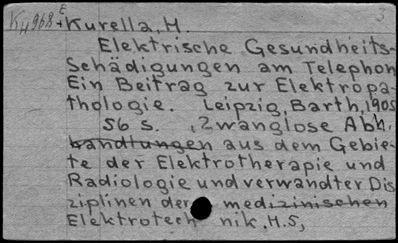 K4968 E + Kurella, H. 3
Elektrische Gesundheits-
Schädigungen am Telephon
Ein Beitrag zur Elektropa-
thologie. Leipzig, Barth, 1905
56 s. „Zwanglose Abh.
handlungen aus dem Gebie-
te der Elektrotherapie und
Radiologie und verwandter Dis
ziplinen der medizinischen
Elektrotech nik, H.5,